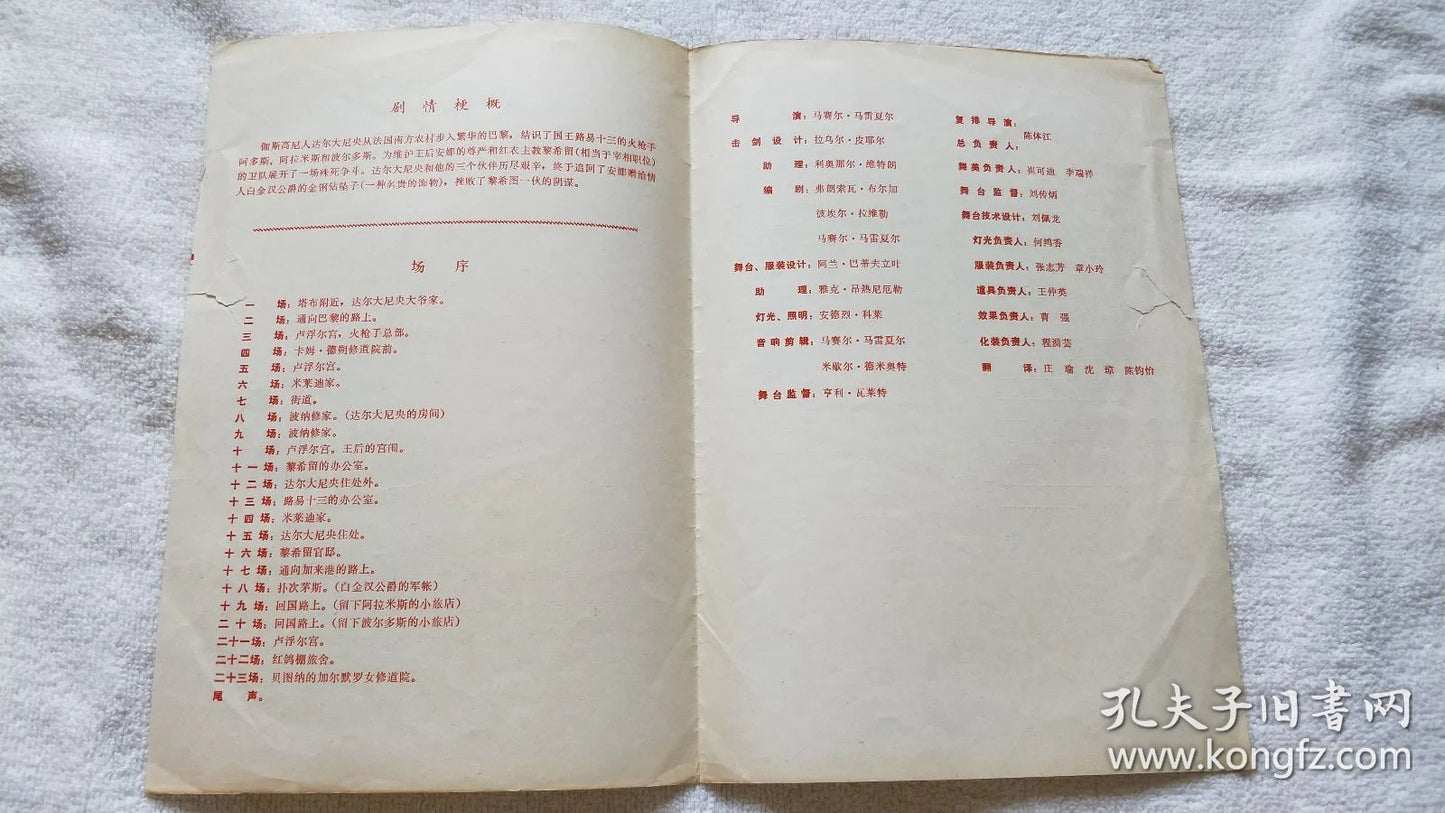 剧情梗概
伽斯高尼人达尔大尼央从法国南方农村步入繁华的巴黎，结识了国王路易十三的火枪手
阿多斯、阿拉米斯和波尔多斯。为维护王后安娜的尊严和红衣主教黎希留(相当于宰相职位)
的卫队展开了一场殊死争斗。达尔大尼央和他的三个伙伴历尽艰辛，终于追回了安娜赠给情
人白金汉公爵的金钢钻坠子(一种名贵的饰物)，挫败了黎希留一伙的阴谋。
场序
一场：塔布附近，达尔大尼央大爷家。
二场：通向巴黎的路上。
三场：卢浮尔宫，火枪手总部。
四场：卡姆·德朔修道院前。
五场：卢浮尔宫。
六场：米莱迪家。
七场：街道。
八场：波纳修家。(达尔大尼央的房间)
九场：波纳修家。
十场：卢浮尔宫。王后的宫闱。
十一场：黎希留的办公室。
十二场：达尔大尼央住处外。
十三场：路易十三的办公室。
十四场：米莱迪家。
十五场：达尔大尼央住处。
十六场：黎希留官邸。
十七场：通向加来港的路上。
十八场：扑次茅斯。(白金汉公爵的军帐)
十九场：回国路上。(留下阿拉米斯的小旅店)
二十场：回国路上。(留下波尔多斯的小旅店)
二十一场：卢浮尔宫。
二十二场：红鸽棚旅舍。
二十三场：贝图纳的加尔默罗女修道院。
尾声。
导演：马赛尔·马雷夏尔
击剑设计：拉乌尔·皮耶尔
助理：利奥那尔·维特朗
编剧：弗朗索瓦·布尔加
彼埃尔·拉维勒
马赛尔·马雷夏尔
舞台、服装设计：阿兰·巴蒂夫立叶
助理：雅克·昂热尼厄勒
灯光、照明：安德烈·科莱
音响剪辑：马赛尔·马雷夏尔
米歇尔·德米奥特
舞台监督：亨利·瓦莱特
复排导演：
陈体江
总负责人：
舞美负责人：崔可迪 李瑞祥
舞台监督：刘传炳
舞台技术设计：刘佩龙
灯光负责人：何鸿香
服装负责人：张志芳 章小玲
道具负责人：王仲英
效果负责人：曹强
化装负责人：程漪芸
翻译：庄瑜 沈琼 陈钧怡
孔夫子旧书网
www.kongfz.com